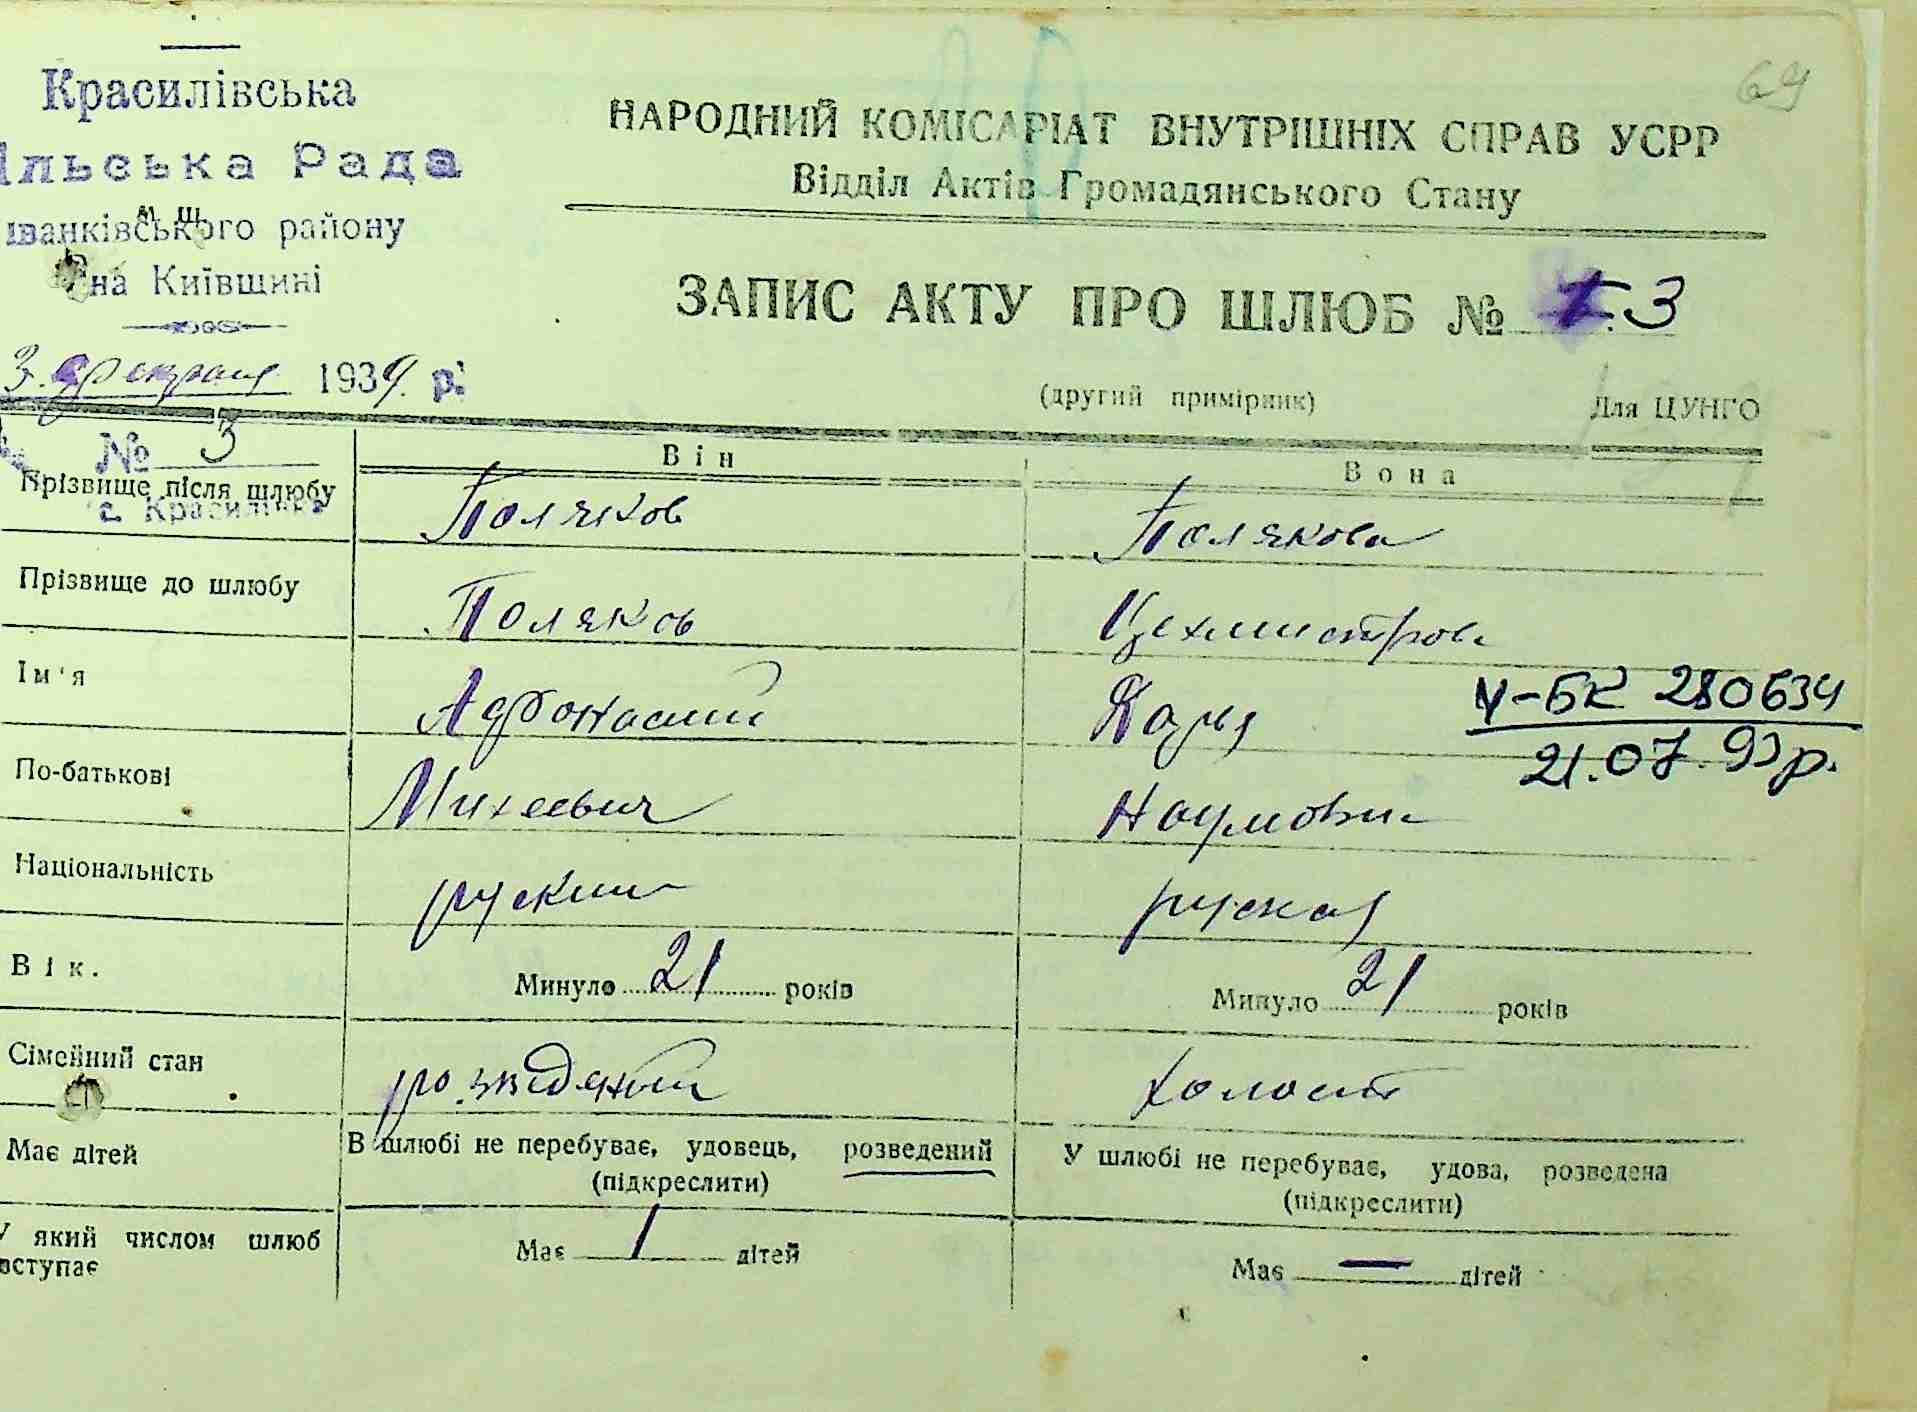 69
Красилівська
ільська Рада
мш
іванківського району
на Київщині
3. февраля 1939 р.
№ 3
с. Красилівка
НАРОДНИЙ КОМІСАРІАТ ВНУТРІШНІХ СПРАВ УСРР
Відділ Актів Громадянського Стану
ЗАПИС АКТУ ПРО ШЛЮБ № 3
(другий примірник) Для ЦУНГО
Він Вона
Прізвище після шлюбу Поляков Полякова
Прізвище до шлюбу Поляков Цехмистрова
Ім'я Афонасий Дарья
У-БК 280634
21.07.93р.
По-батькові Михеевич Наумовн
Національність руский руская
Вік. Минуло 21 років Минуло 21 років
Сімейний стан розведений холост
Має дітей В шлюбі не перебуває, удовець, розведений У шлюбі не перебуває, удова, розведена
(підкреслити) (підкреслити)
У який числом шлюб Має 1 дітей Має — дітей
вступає